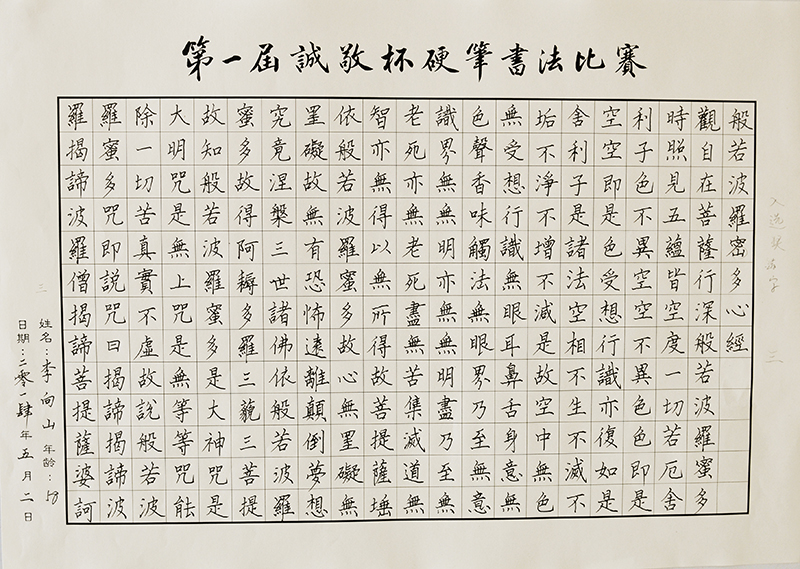 第一屆誠敬杯硬筆書法比賽
般若波羅密多心經
觀自在菩薩行深般若波羅蜜多
時照見五蘊皆空度一切苦厄舍
利子色不異空空不異色色即是
空空即是色受想行識亦復如是
舍利子是諸法空相不生不滅不
垢不淨不增不減是故空中無色
無受想行識無眼耳鼻舌身意無
色聲香味觸法無眼界乃至無意
識界無無明亦無無明盡乃至無
老死亦無老死盡無苦集滅道無
智亦無得以無所得故菩提薩埵
依般若波羅蜜多故心無罣礙無
罣礙故無有恐怖遠離顛倒夢想
究竟涅槃三世諸佛依般若波羅
蜜多故得阿耨多羅三藐三菩提
故知般若波羅蜜多是大神咒是
大明咒是無上咒是無等等咒能
除一切苦真實不虛故說般若波
羅蜜多咒即說咒曰揭諦揭諦波
羅揭諦波羅僧揭諦菩提薩婆訶
姓名：李向山 年齡：
日期：二零一肆年五月二日
三